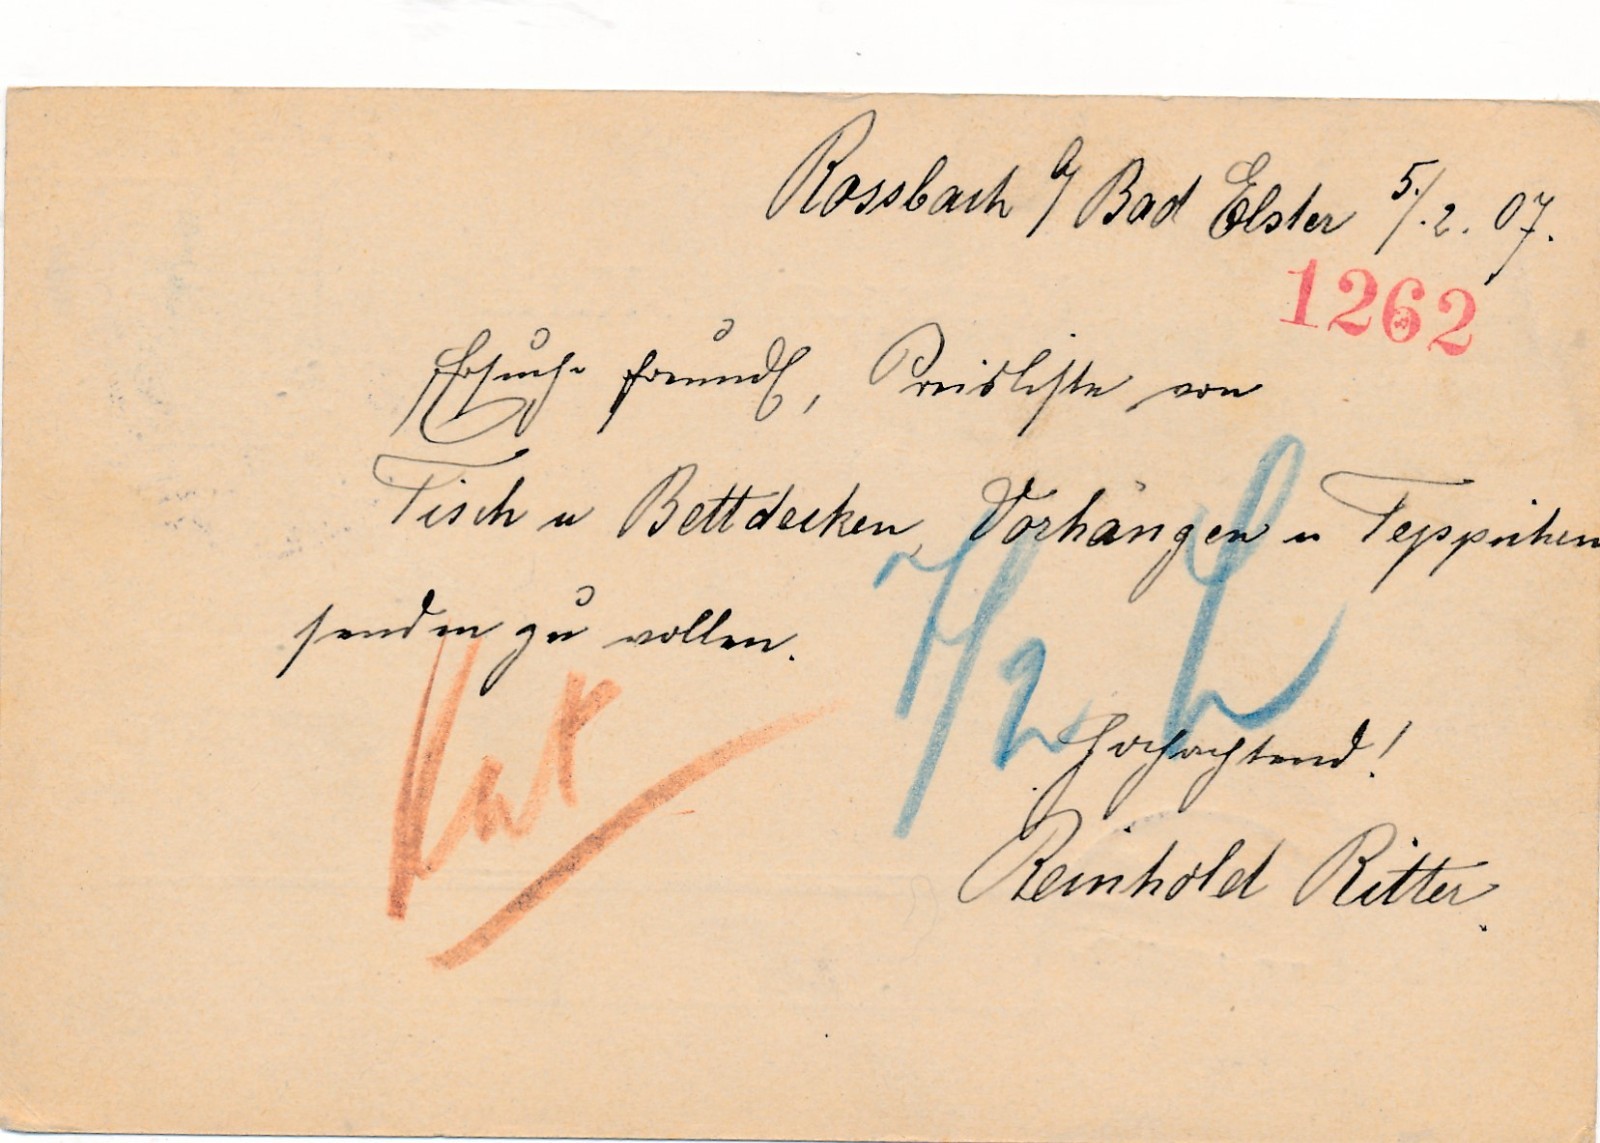 Rossbach a/ Bad Elster 5./.2. 07.
1262
Ersuche freundl, Preisliste von
Tisch u Bettdecken, Vorhängen u Teppichen
senden zu wollen.
7/2
Hochachtend!
Reinhold Ritter.